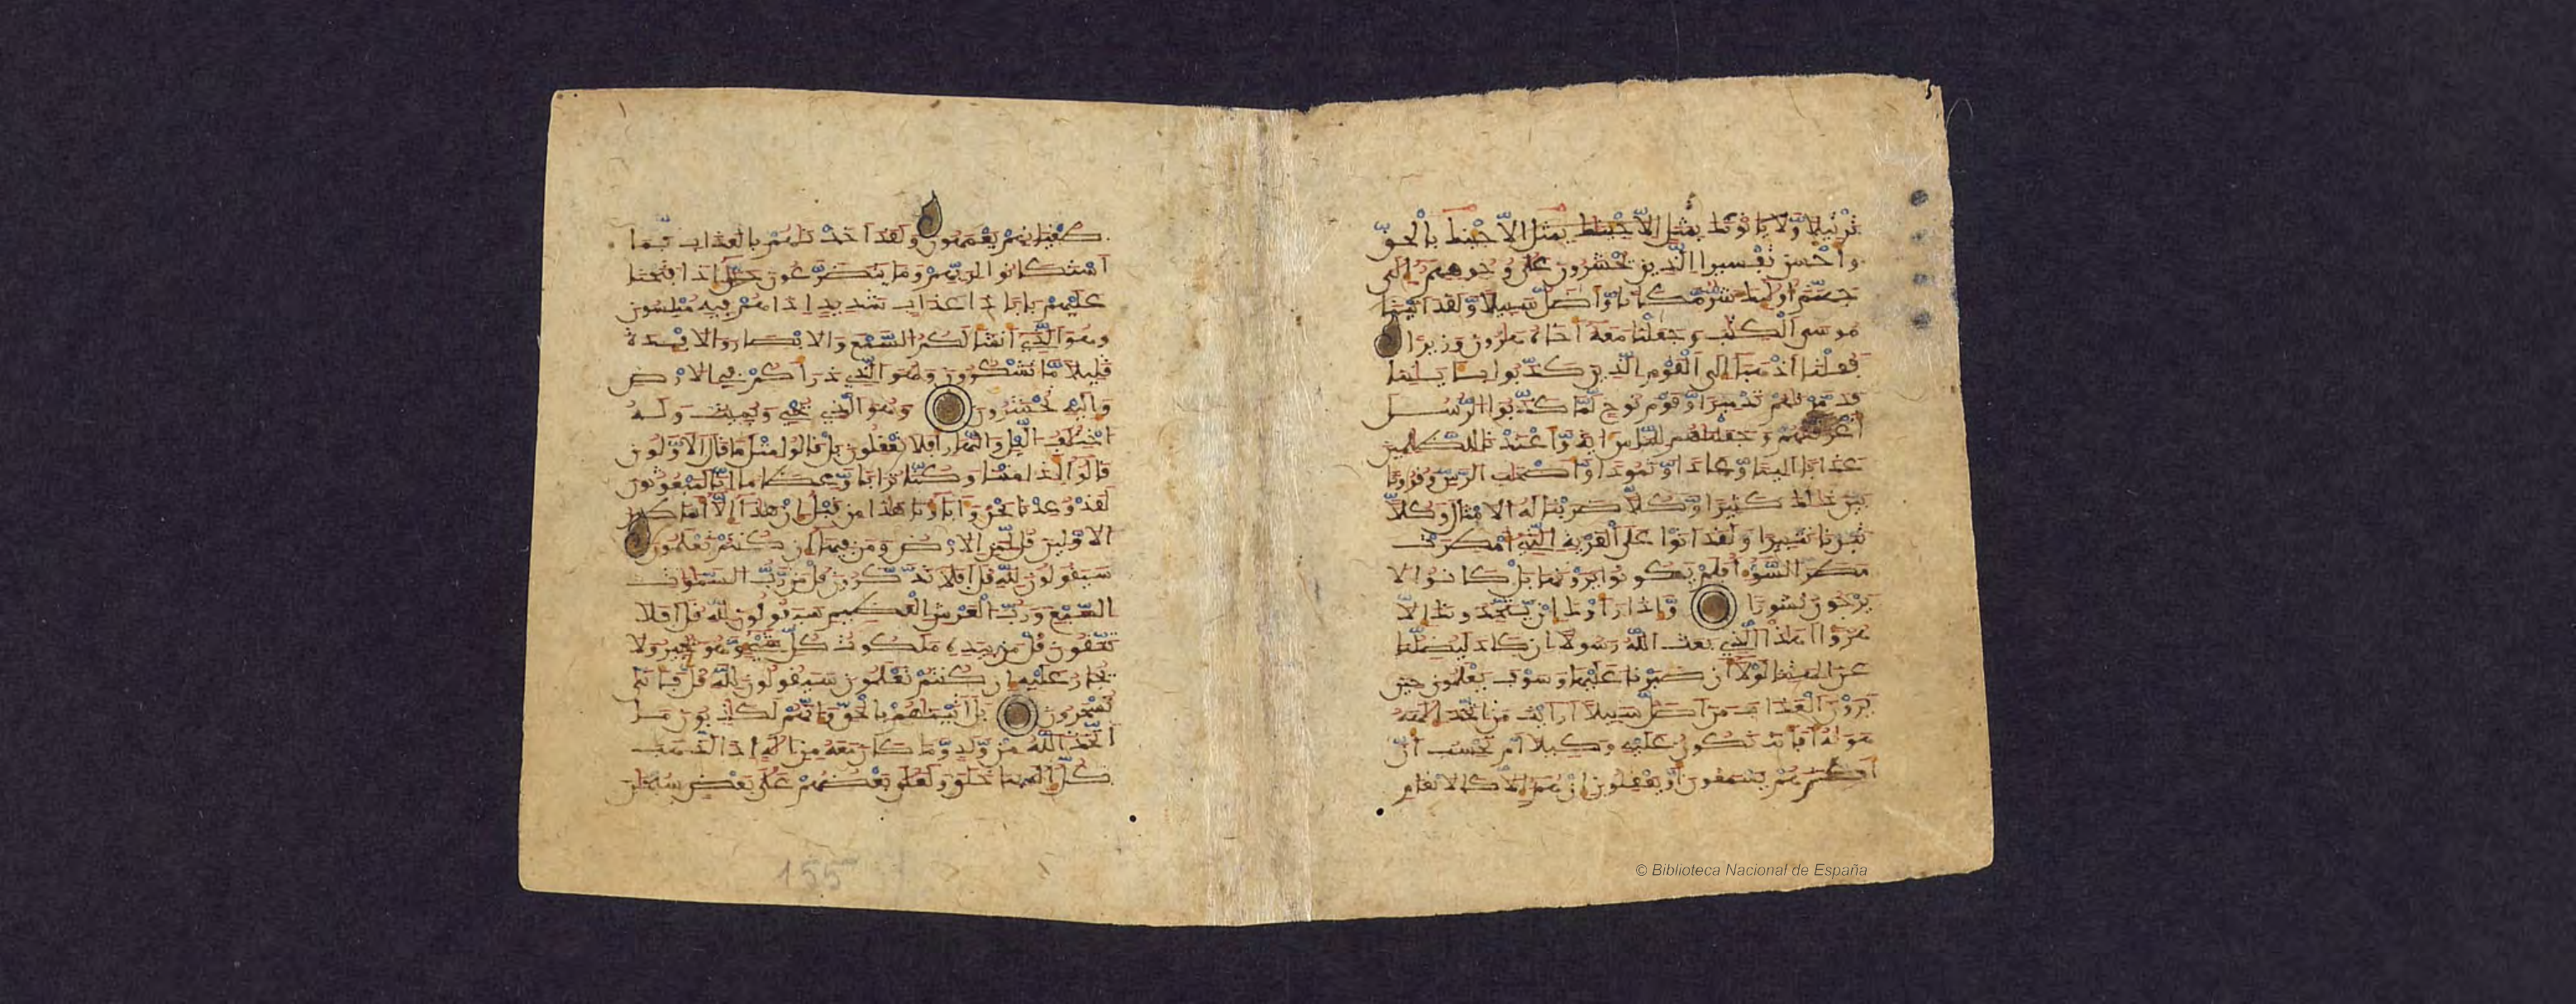 ترتيلا ولا ياتونك بمثل الا جئنك بمثل الا جئنك بالحق
واحسن تفسيرا الذين يحشرون على وجوههم الى
جهنم اولئك شر مكانا واضل سبيلا ولقد اتينا
موسى الكتب وجعلنا معه اخاه هرون وزيرا
فقلنا اذهبا الى القوم الذين كذبوا بايتنا
فدمرنهم تدميرا وقوم نوح لما كذبوا الرسل
اغرقنهم وجعلنهم للناس اية واعتدنا للظلمين
عذابا اليما وعادا وثمودا واصحب الرس وقرونا
بين ذلك كثيرا وكلا ضربنا له الامثل وكلا
تبرنا تتبيرا ولقد اتوا على القرية التي امطرت
مطر السوء افلم يكونوا يرونها بل كانوا لا
يرجون نشورا واذا راوك ان يتخذونك الا
هزوا اهذا الذي بعث الله رسولا ان كاد ليضلنا
عن الهتنا لولا ان صبرنا عليها وسوف يعلمون حين
يرون العذاب من اضل سبيلا ارايت من اتخذ الهه
هويه افانت تكون عليه وكيلا ام تحسب ان
اكثرهم يسمعون او يعقلون ان هم الا كالانعام
© Biblioteca Nacional de España
طغينهم يعمهون ولقد اخذنهم بالعذاب فما
استكانوا لربهم وما يتضرعون حتى اذا فتحنا
عليهم بابا ذا عذاب شديد اذا هم فيه مبلسون
وهو الذي انشا لكم السمع والابصار والافـدة
قليلا ما تشكرون وهو الذي ذراكم في الارض
واليه تحشرون وهو الذي يحي ويميت وله
اختلف اليل والنهار افلا تعقلون بل قالوا مثل ما قال الاولون
قالوا اذا متنا وكنا ترابا وعظاما انا لمبعوثون
لقد وعدنا نحن واباونا هذا من قبل ان هذا الا اسطير
الاولين قل لمن الارض ومن فيها ان كنتم تعلمون
سيقولون لله قل افلا تذكرون قل من رب السموات
السبع ورب العرش العظيم سيقولون لله قل افلا
تتقون قل من بيده ملكوت كل شيء وهو يجير ولا
يجار عليه ان كنتم تعلمون سيقولون لله قل فانى
تسحرون بل اتينهم بالحق وانهم لكذبون ما
اتخذ الله من ولد وما كان معه من اله اذا لذهب
كل اله بما خلق ولعلى بعضهم على بعض سبحن
155